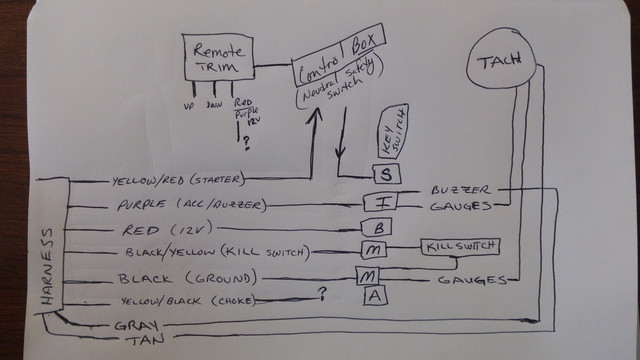 Remote
TRIM
Control Box
(Neutral Safety
Switch)
TACH
UP
DOWN
RED
Purple
12V
?
KEY
SWITCH
YELLOW/RED (STARTER)
S
PURPLE (ACC/BUZZER)
I
BUZZER
GAUGES
RED (12V)
B
BLACK/YELLOW (KILL SWITCH)
M
KILL SWITCH
BLACK (GROUND)
M
GAUGES
YELLOW/BLACK (CHOKE)
?
A
HARNESS
GRAY
TAN